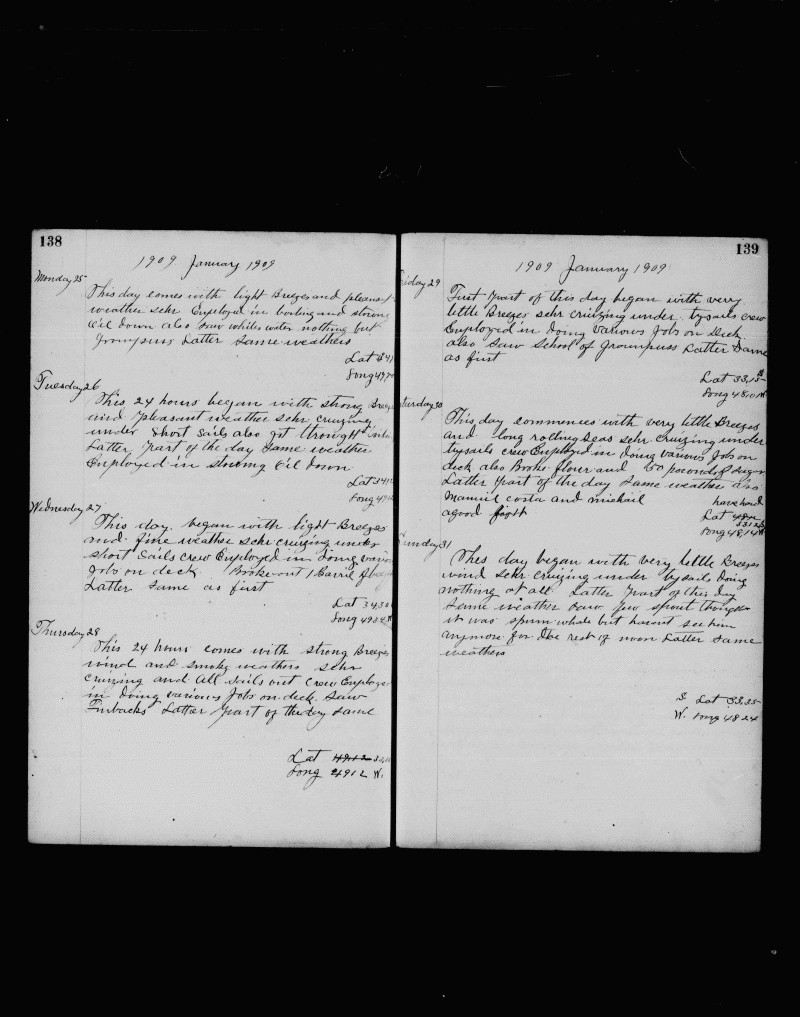 138
1909 January 1909
Monday 25
This day comes with light Breezes and pleasant
weather schr Employed in boiling and stowing
Oil down also saw whiles water nothing but
grompuss Latter Same weathers
Lat 34
Long 49
Tuesday 26
This 24 hours began with strong Breezes
wind pleasant weather schr cruizing
under short Sails also got throught
Latter part of the day same weather
Employed in stowing Oil down
Lat 34
Long 49
Wednesday 27
This day began with light Breezes
and fine weather schr cruizing under
short Sails crew Employed in doing various
Jobs on deck Broke out 1 Barril
Latter same as first
Lat 34,30
Long 49
Thursday 28
This 24 hours comes with strong Breezes
wind and smoky weathers schr
cruizing and All sails out Crew Employed
in Doing various Jobs on deck. Saw
Finbacks Latter part of the day same
Lat
Long 4912 W.
139
1909 January 1909
Friday 29
First part of this day began with very
little Breezes schr cruizing under trysails crew
Employed in Doing various Jobs on Deck
also Saw School of Grounpuss Latter Same
as first
Lat 33,15 S
Long 48,01 W
Saturday 30
This day commences with very little Breezes
and long rolling seas schr Cruizing under
trysails crew Employed in doing various Jobs on
deck also Broke flour and 50 pounds of sugar
Latter part of the day same weather also
Manuil costa and michail have had
a good fight
Lat 3312 S
Long 48,14 W
Sunday 31
This day began with very little Breezes
wind schr cruizing under trysails doing
nothing at all Latter part of this day
Same weather saw few spout thought
it was spum whale but havent see him
anymore for the rest of noon Latter same
weathers
S Lat 33,35
W. Long 48 24